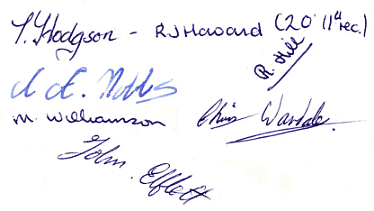 T. Hodgson - RJ Howard (20 11th rec.)
R. Hill
M. Williamson
Chris Wardale
John